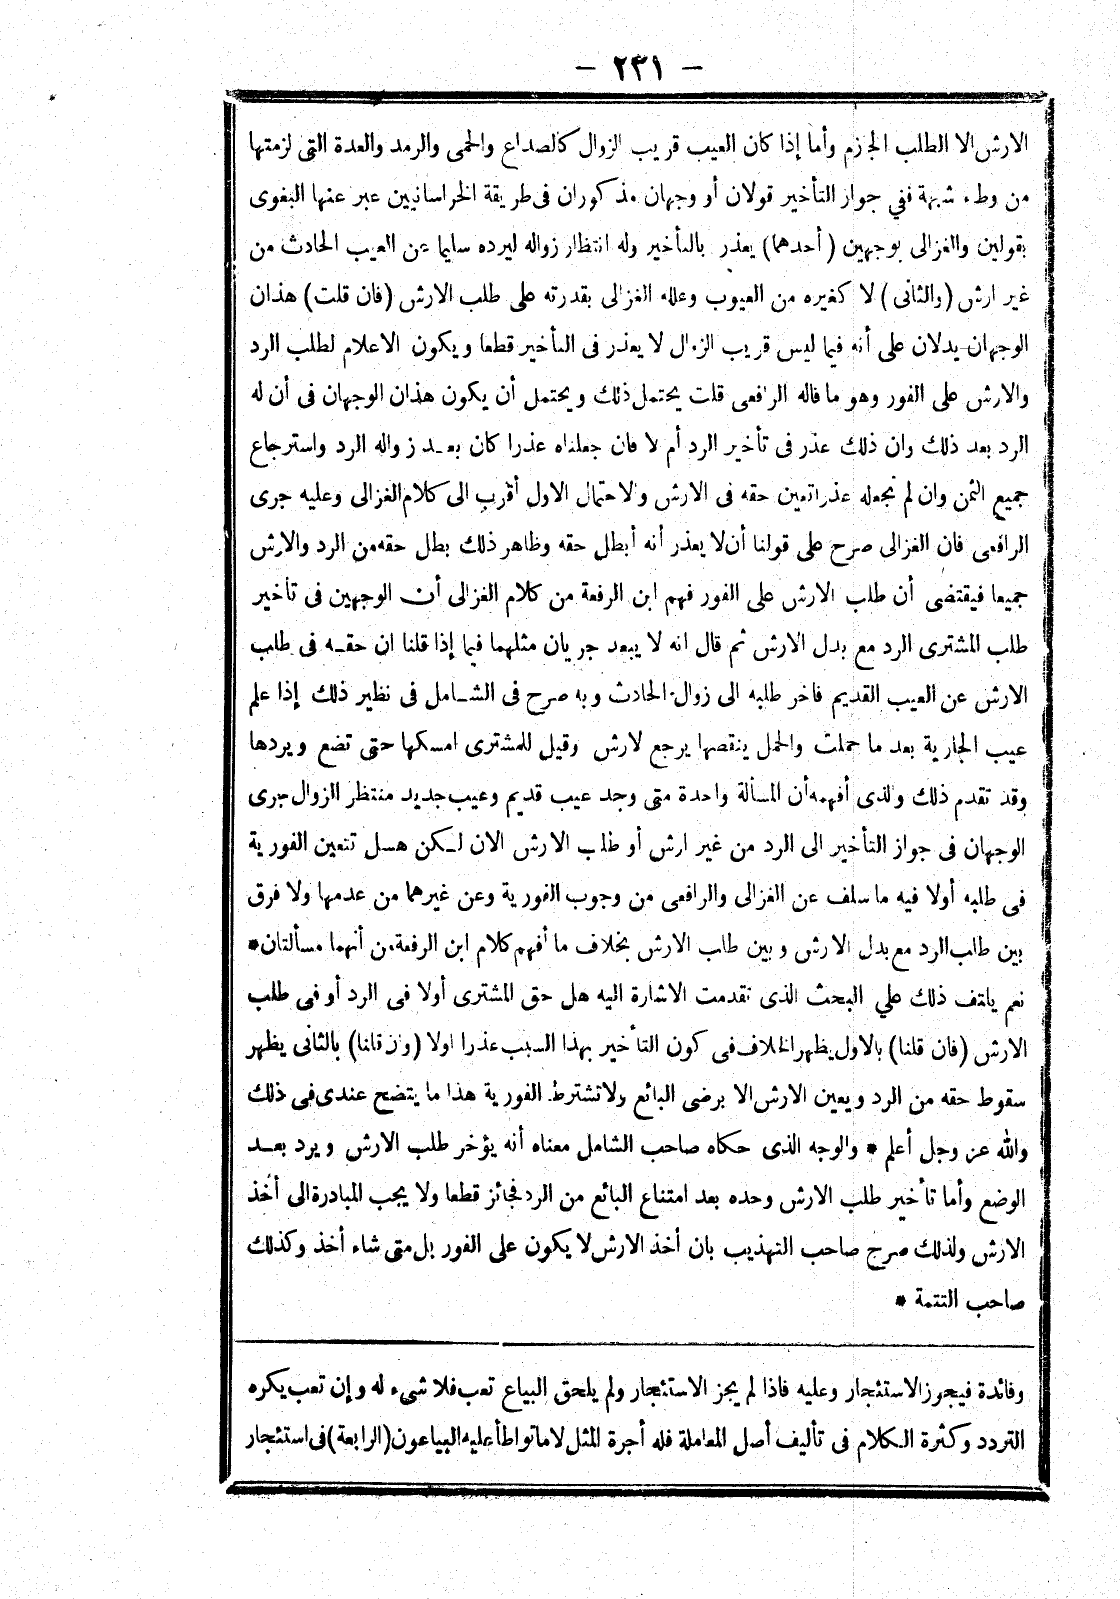 - ٢٣١ -
الارش الا الطلب الجزم وأما إذا كان العيب قريب الزوال كالصداع والحمى والرمد والعدة التى لزمتها
من وطء شبهة ففي جواز التأخير قولان أو وجهان مذكوران فى طريقة الخراسانيين عبر عنها البغوى
بقولين والغزالى بوجهين (أحدهما) يعذر بالتأخير وله انتظار زواله ليرده سليما عن العيب الحادث من
غير ارش (والثانى) لا كغيره من العيوب وعلله الغزالى بقدرته على طلب الارش (فان قلت) هذان
الوجهان يدلان على أنه فيما ليس قريب الزوال لا يعذر فى التأخير قطعا ويكون الاعلام لطلب الرد
والارش على الفور وهو ماقاله الرافعى قلت يحتمل ذلك ويحتمل أن يكون هذان الوجهان فى أن له
الرد بعد ذلك وان ذلك عذر فى تأخير الرد أم لا فان جعلناه عذرا كان بعد زواله الرد واسترجاع
جميع الثمن وان لم نجعله عذرا تعين حقه فى الارش والاحتمال الاول أقرب الى كلام الغزالى وعليه جرى
الرافعى فان الغزالى صرح على قولنا أن لا يعذر أنه أبطل حقه وظاهر ذلك بطل حقه من الرد والارش
جميعا فيقتضى أن طلب الارش على الفور فهم ابن الرفعة من كلام الغزالى أن الوجهين فى تأخير
طلب المشترى الرد مع بدل الارش ثم قال انه لا يبعد جريان مثلهما فيما إذا قلنا ان حقه فى طلب
الارش عن العيب القديم فاخر طلبه الى زوال الحادث وبه صرح فى الشامل فى نظير ذلك إذا علم
عيب الجارية بعد ما حملت والحمل ينقصها يرجع لارش وقيل للمشترى امسكها حتى تضع ويردها
وقد تقدم ذلك والذى أفهمه أن المسألة واحدة متى وجد عيب قديم وعيب جديد منتظر الزوال جرى
الوجهان فى جواز التأخير الى الرد من غير ارش أو طلب الارش الان لكن هسل تتعين الفورية
فى طلبه أولا فيه ما سلف عن الغزالى والرافعى من وجوب الفورية وعن غيرهما من عدمها ولا فرق
بين طلب الرد مع بدل الارش وبين طلب الارش بخلاف ما أفهم كلام ابن الرفعة من أنهما مسألتان *
نعم يلتف ذلك علي البحث الذى تقدمت الاشارة اليه هل حق المشترى أولا فى الرد أو فى طلب
الارش (فان قلنا) بالاول يظهر الخلاف فى كون التأخير بهذا السبب عذرا اولا (وان قلنا) بالثانى يظهر
سقوط حقه من الرد ويعين الارش الا برضى البائع ولا تشترط الفورية هذا ما يتضح عندى فى ذلك
والله عز وجل أعلم * والوجه الذى حكاه صاحب الشامل معناه أنه يؤخر طلب الارش ويرد بعد
الوضع وأما تأخير طلب الارش وحده بعد امتناع البائع من الرد فجائز قطعا ولا يجب المبادرة الى أخذ
الارش ولذلك صرح صاحب التهذيب بان أخذ الارش لا يكون على الفور بل متى شاء أخذ وكذلك
صاحب التتمة *
وفائدة فيجوز الاستئجار وعليه فاذا لم يجز الاستئجار ولم يلحق البياع تعب فلا شىء له وإن تعب يكره
التردد وكثرة الكلام فى تأليف أصل المعاملة فله أجرة المثل لا ما تواطأ عليه البياعون (الرابعة) فى استئجار